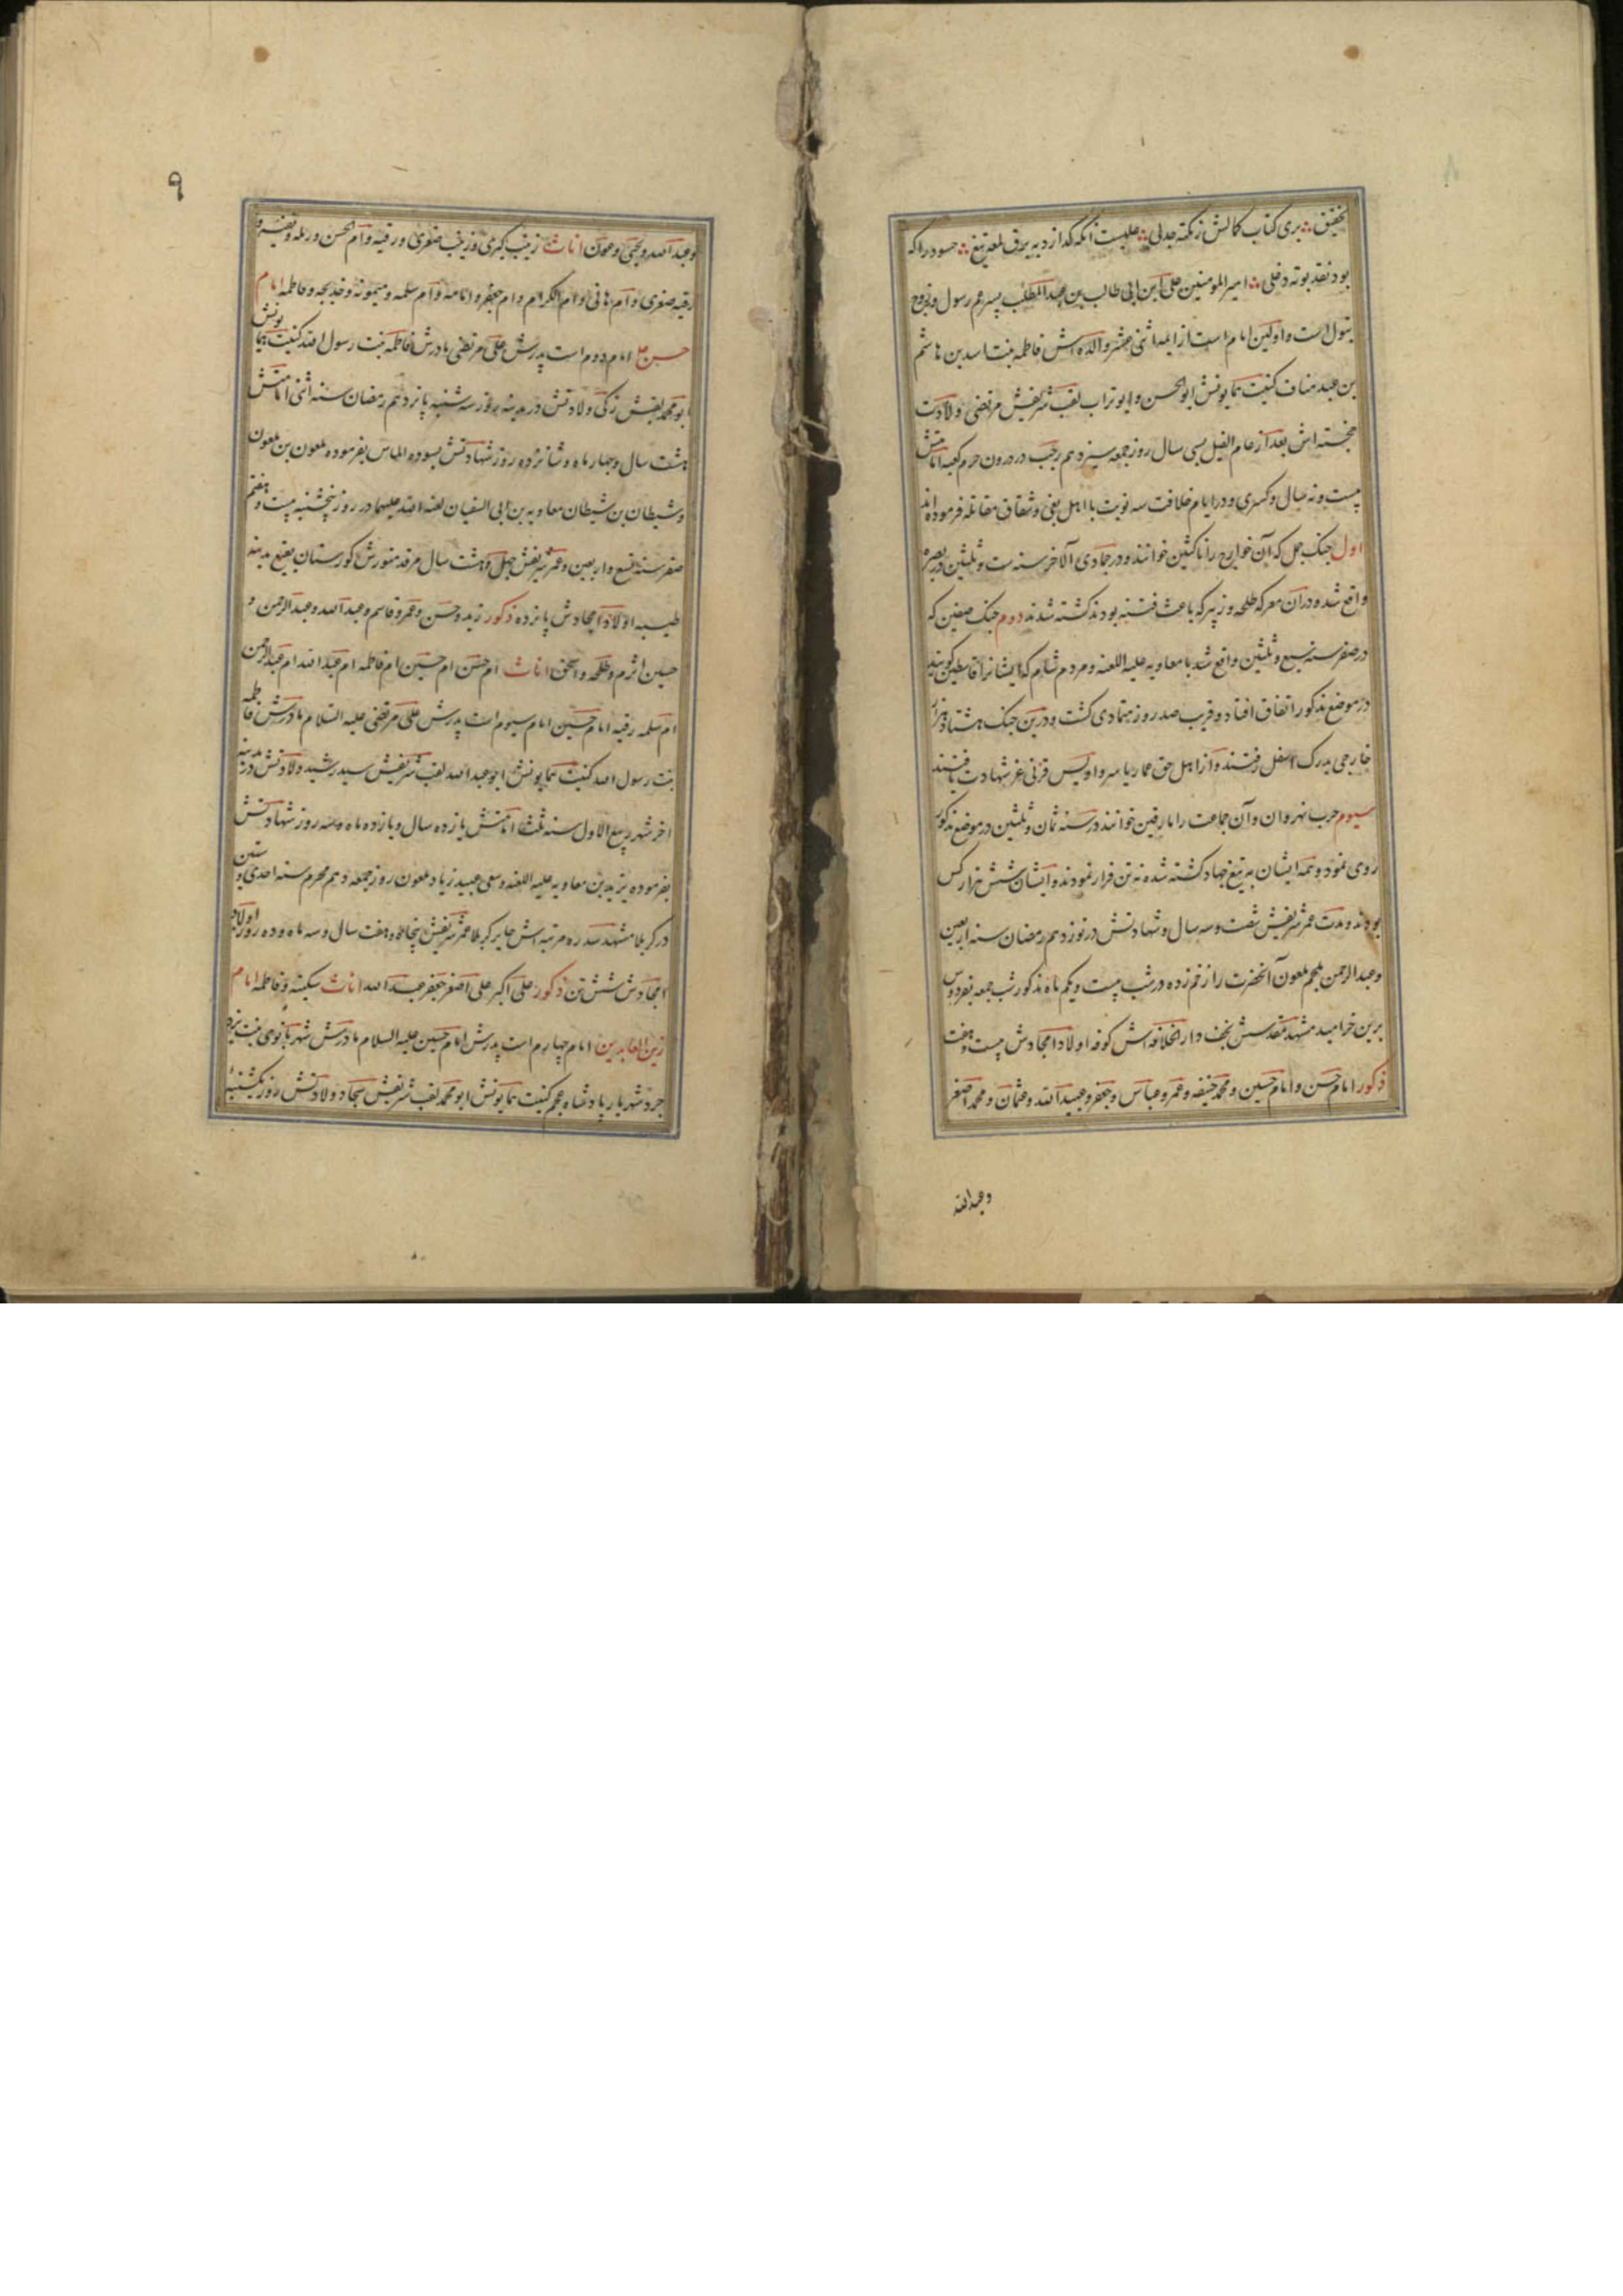 تحقیق ؞ بری کتاب کمالش ز نکته جدلی ؞ علیست آنکه گدازد به برق لمعه تیغ ؞ حسود را که
بود نقد بوته دغلی ؞ امیر المومنین علی ابن ابی طالب بن عبد المطلب پسر عم رسول و زوج
بتول است و اولین امام است از ایمه اثنی عشر والده اش فاطمه بنت اسد بن هاشم
بن عبد مناف کنیت همایونش ابو الحسن و ابو تراب لقب شریفش مرتضی ولادت
خجسته اش بعد از عام الفیل بسی سال روز جمعه سیزدهم رجب در درون حرم کعبه امامتش
بیست و نه سال و کسری و در ایام خلافت سه نوبت با اهل بغی و شقاق مقاتله فرموده اند
اول جنک جمل که آن خوارج را ناکثین خوانند و در جمادی الآخر سنه ست و ثلثین در بصره
واقع شده در آن معرکه طلحه و زبیر که باعث فتنه بودند کشته شدند دوم جنک صفین که
در صفر سنه سبع و ثلثین واقع شد با معاویه علیه اللعنه و مردم شام که ایشانرا قاسطین کویند
در موضع مذکور اتفاق افتاد و قریب صد روز متمادی کشت و درین جنک هشتاد هزار
خارجی بدرک اسفل رفتند و از اهل حق عمار یاسر و اویس قرنی عز شهادت یافتند
سیوم حرب نهروان و آن جماعت را مارقین خوانند در سنه ثمان و ثلثین در موضع مذکور
روی نمود و همه ایشان به تیغ جهاد کشته شده نه تن فرار نمودند و ایشان شش هزار کس
بودند و مدت عمر شریفش شصت و سه سال و شهادتش در نوزدهم رمضان سنه اربعین
و عبد الرحمن ملجم ملعون آنحضرت را زخم زده در شب بیست و یکم ماه مذکور شب جمعه بفردوس
برین خرامید مشهد مقدسش نجف دار الخلافه اش کوفه اولاد امجادش بیست و هفت
ذکور امام حسن و امام حسین و محمد حنیفه و عمر و عباس و جعفر و عبید الله و عثمان و محمد اصغر
و عبد الله
۹
و عبد الله و یحیی و عون اناث زینب کبری و زینب صغری و رقیه و ام الحسن و رمله و نفیسه و
رقیه صغری و ام هانی و ام الکرام و ام جعفر و امامه و ام سلمه و میمونه و خدیجه و فاطمه امام
حسن ع امام دوم است پدرش علی مرتضی مادرش فاطمه بنت رسول الله کنیت همایونش
ابو محمد لقبش زکی ولادتش در مدینه روز سه شنبه پانزدهم رمضان سنه اثنی امامتش
هشت سال و چهار ماه و شانزده روز شهادتش بسوده الماس بفرموده ملعون بن ملعون
و شیطان بن شیطان معاویه بن ابی السفیان لعنه الله علیهما در روز پنجشنبه بیست و هفتم
صفر سنه تسع و اربعین و عمر شریفش چهل و هشت سال مرقد منورش کورستان بقیع مدینه
طیبه اولاد امجادش پانزده ذکور زید و حسن و عمر و قاسم و عبد الله و عبد الرحمن و
حسین اثرم و طلحه و اسحق اناث ام حسن ام حسین ام فاطمه ام عبد الله ام عبد الرحمن
ام سلمه رقیه امام حسین امام سیوم است پدرش علی مرتضی علیه السلام مادرش فاطمه
بنت رسول الله کنیت همایونش ابو عبد الله لقب شریفش سید رشید ولادتش در مدینه
اخر شهر ربیع الاول سنه ثلث امامتش یازده سال و یازده ماه و سه روز شهادتش
بفرموده یزید بن معاویه علیه اللعنه و سعی عبید زیاد ملعون روز جمعه دهم محرم سنه احدی و ستین
در کربلا مشهد سدره مرتبه اش حایر کربلا عمر شریفش پنجاه و هفت سال و سه ماه و ده روز اولاد
امجادش شش تن ذکور علی اکبر علی اصغر جعفر عبد الله اناث سکینه و فاطمه امام
زین العابدین امام چهارم است پدرش امام حسین علیه السلام مادرش شهر بانوی بنت یزد
جرد شهریار پادشاه عجم کنیت همایونش ابو محمد لقب شریفش سجاد ولادتش روز یکشنبه